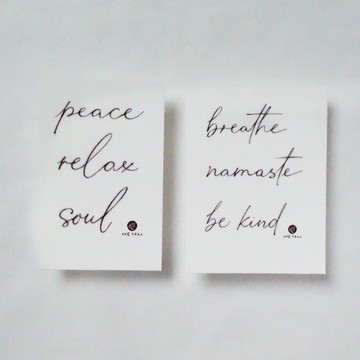 peace
relax
soul
breathe
namaste
be kind